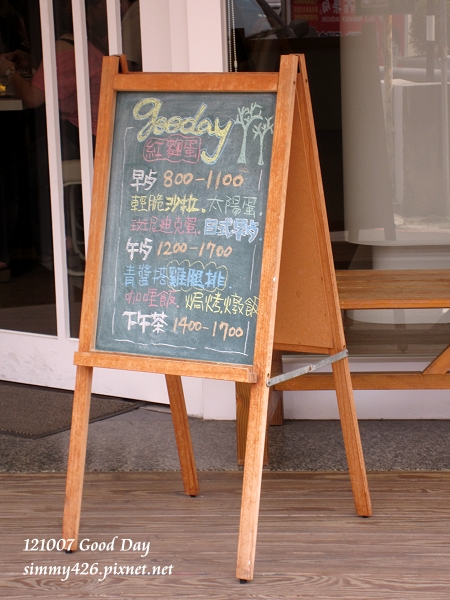 gooday
紅雞蛋
早ㄘ 800-1100
輕脆沙拉.太陽蛋.
班尼迪克蛋.日式早ㄘ
午ㄘ 1200-1700
青醬塔雞腿排
咖哩飯.焗烤燉飯
下午茶 1400-1700
121007 Good Day
simmy426.pixnet.net